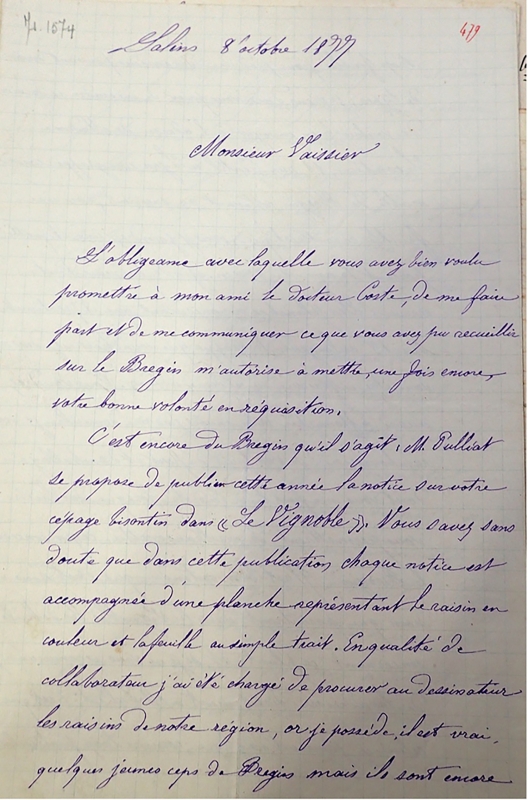 Ms. 1874
479
Salins 8 octobre 1877
Monsieur Vaissier
L'obligeance avec laquelle vous avez bien voulu
promettre à mon ami le docteur Coste, de me faire
part et de me communiquer ce que vous avez pu recueillir
sur le Bregin m'autorise à mettre, une fois encore,
votre bonne volonté en réquisition.
C'est encore du Bregin qu'il s'agit : M. Pulliat
se propose de publier cette année la notice sur votre
cépage bisontin dans « Le Vignoble ». Vous savez sans
doute que dans cette publication chaque notice est
accompagnée d'une planche représentant le raisin en
couleur et la feuille au simple trait. En qualité de
collaborateur j'ai été chargé de procurer au dessinateur
les raisins de notre région, or je possède, il est vrai,
quelques jeunes ceps de Bregin mais ils sont encore